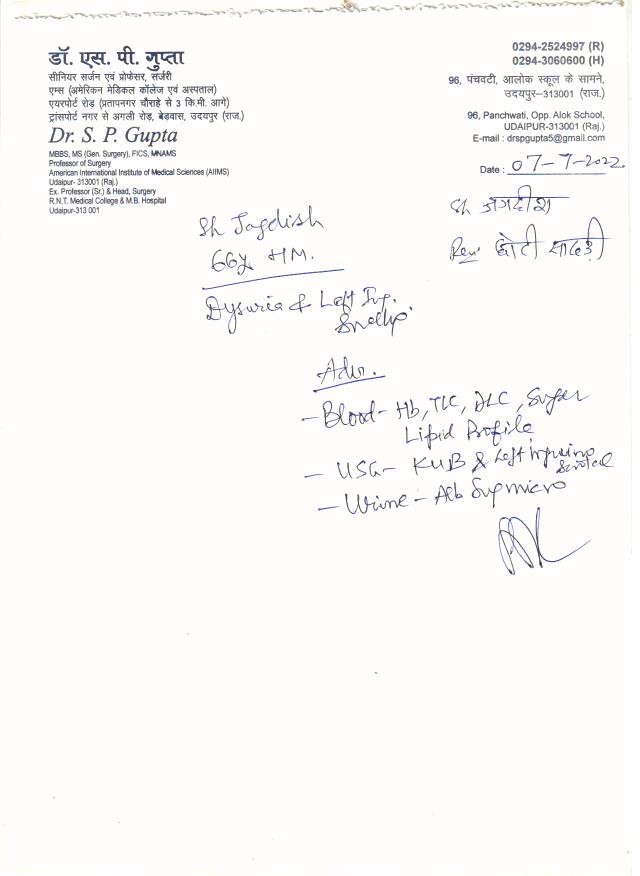 डॉ. एस. पी. गुप्ता
सीनियर सर्जन एवं प्रोफेसर, सर्जरी
एम्स (अमेरिकन मेडिकल कॉलेज एवं अस्पताल)
एयरपोर्ट रोड़ (प्रतापनगर चौराहे से 3 कि.मी. आगे)
ट्रांसपोर्ट नगर से अगली रोड़, बेड़वास, उदयपुर (राज.)
Dr. S. P. Gupta
MBBS, MS (Gen. Surgery), FICS, MNAMS
Professor of Surgery
American International Institute of Medical Sciences (AIIMS)
Udaipur- 313001 (Raj.)
Ex. Professor (Sr.) & Head, Surgery
R.N.T. Medical College & M.B. Hospital
Udaipur-313 001
0294-2524997 (R)
0294-3060600 (H)
96, पंचवटी, आलोक स्कूल के सामने,
उदयपुर–313001 (राज.)
96, Panchwati, Opp. Alok School,
UDAIPUR-313001 (Raj.)
E-mail : drspgupta5@gmail.com
Date : 07-7-2022
Sh जगदीश
छोटी सादड़ी
Sh Jagdish
66y HM.
Dysuria & Left Ing.
Adv.
- Blood - Hb, TLC, DLC, Sugar
Lipid Profile
- USG - KUB & Left Inguino
Scrotal
- Urine - Alb Sug micro